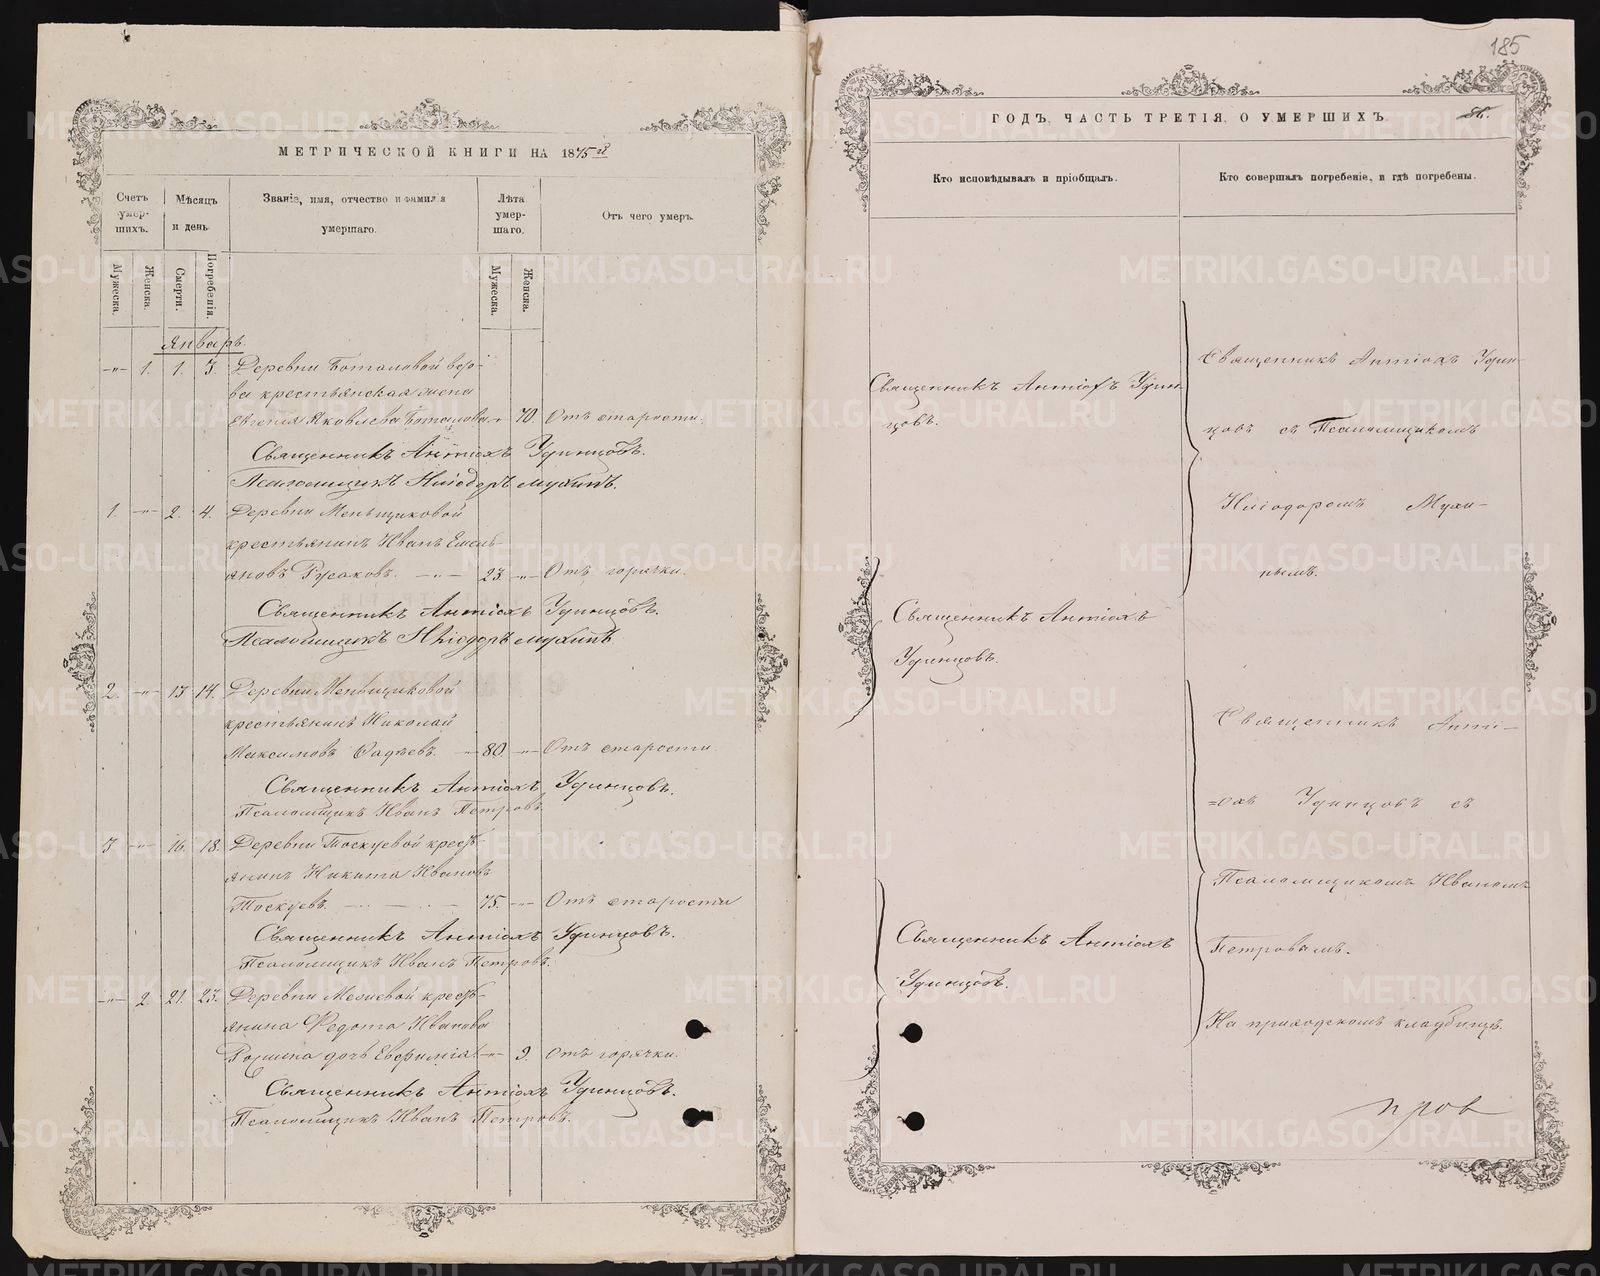 МЕТРИЧЕСКОЙ КНИГИ НА 1875й
Счетъ умер-шихъ.
Мѣсяцъ и день.
Званіе, имя, отчество и фамилія умершаго.
Лѣта умер-шаго.
Отъ чего умеръ.
Мужеска.
Женска.
Смерти.
Погребенія.
Мужеска.
Женска.
Январь.
-"- 1. 1. 3. Деревни
крестьянская жена
Евгенія Яковлева 70. Отъ старости.
Священникъ Антіохъ Удинцовъ.
Псаломщикъ Ніодоръ Мухинъ.
1. -"- 2. 4. Деревни Меньщиковой
крестьянинъ Иванъ Емель-
яновъ Русаковъ. -"- 23. -"- Отъ горячки.
Священникъ Антіохъ Удинцовъ.
Псаломщикъ Ніодоръ Мухинъ
2. -"- 13 14. Деревни Меньщиковой
крестьянинъ Николай
Максимовъ Фадѣевъ. 80. -"- Отъ старости.
Священникъ Антіохъ Удинцовъ.
Псаломщикъ Иванъ Петровъ.
3 -"- 16. 18. Деревни Тоскуевой крест-
янинъ Никита Ивановъ
Тоскуевъ. 75. -"- Отъ старости
Священникъ Антіохъ Удинцовъ.
Псаломщикъ Иванъ Петровъ.
-"- 2. 21. 23. Деревни крест-
янина Федота Иванова
дочь Евфимія -"- 9. Отъ горячки.
Священникъ Антіохъ Удинцовъ.
Псаломщикъ Иванъ Петровъ.
185
ГОДЪ, ЧАСТЬ ТРЕТІЯ, О УМЕРШИХЪ.
86.
Кто исповѣдывалъ и пріобщалъ.
Кто совершалъ погребеніе, и гдѣ погребены.
Священникъ Антіохъ Удин-
цовъ.
Священникъ Антіохъ
Удинцовъ.
Священникъ Антіохъ
Удинцовъ.
Священникъ Антіохъ Удин-
цовъ съ Псаломщикомъ
Ніодоромъ Мухи-
нымъ.
Священникъ Анті-
=охъ Удинцовъ съ
Псаломщикомъ Иваномъ
Петровымъ.
На приходскомъ кладбищѣ.
METRIKI.GASO-URAL.RU